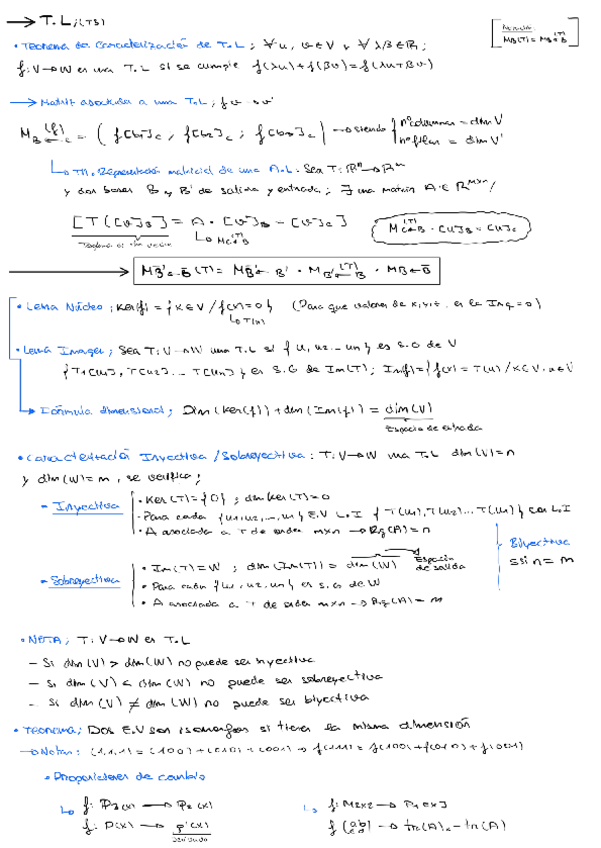 → T.L ;(T5)
Notación:
MB(T) = MB←B (T)
• Teorema de Caracterización de T.L ; ∀ u, v ∈ V y ∀ λ, β ∈ ℝ ;
f: V→W es una T.L si se cumple f(λu) + f(βv) = f(λu + βv)
→ Matriz asociada a una T.L ; f: v → v'
M (f) C←B = ( f[b1]c , f[b2]c ; f[bn]c ) → siendo { nºcolumnas = dim V
nºfilas = dim V'
↳ TH. Representación matricial de una A.L. Sea T: ℝⁿ → ℝᵐ
y dos bases B y B' de salida y entrada ; ∃ una matriz A ∈ ℝ mxn /
[T([v]B)] = A · [v]B = [v]c ]
↳ M (T) C←B
M (T) C←B · [u]B = [u]c
M B̄'←B̄ (T) = M B̄'←B' · M B'←B (T) · M B←B̄
• Lema Núcleo ; Ker(f) = { x ∈ V / f(x) = 0 } (Para que valores de x, y, z.. es la Img = 0)
↳ T(x)
• Lema Imagen ; Sea T: V→W una T.L si { u1, u2 ... un } es s.G de V
{ T[u1], T[u2] ... T[un] } es s.G de Im(T) ; Im(f) = { f(x) = T(u) / x ∈ V, u ∈ V
→ Fórmula dimensional ; Dim(Ker(f)) + dim(Im(f)) = dim(V)
Espacio de entrada
• Caracterización Inyectiva / Sobreyectiva : T: V→W una T.L dim(V) = n
y dim(W) = m , se verifica ;
- Inyectiva
• Ker(T) = {0} ; dim Ker(T) = 0
• Para cada { u1, u2, ..., un } E.V L.I { T(u1), T(u2) ... T(un) } con L.I
• A asociada a T de orden mxn → Rg(A) = n
Biyectiva
ssi n = m
- Sobreyectiva
• Im(T) = W ; dim(Im(T)) = dim(W) Espacio de salida
• Para cada { u1, u2, un } es s.G de W
• A asociada a T de orden mxn → Rg(A) = m
• NOTA ; T: V→W es T.L
- Si dim(V) > dim(W) no puede ser inyectiva
- Si dim(V) < dim(W) no puede ser sobreyectiva
- Si dim(V) ≠ dim(W) no puede ser biyectiva
• Teorema ; Dos E.V son isomorfos si tienen la misma dimensión
→ Notas: (1,1,1) = (100) + (010) + (001) → f(111) = f(100) + f(010) + f(001)
• Proposiciones de cambio
↳ f: P3(x) → P2(x)
↳ f: M2x2 → P1[x]
f: P(x) → p'(x)
derivada
f (a b c d) → tr(A)x - tr(A)